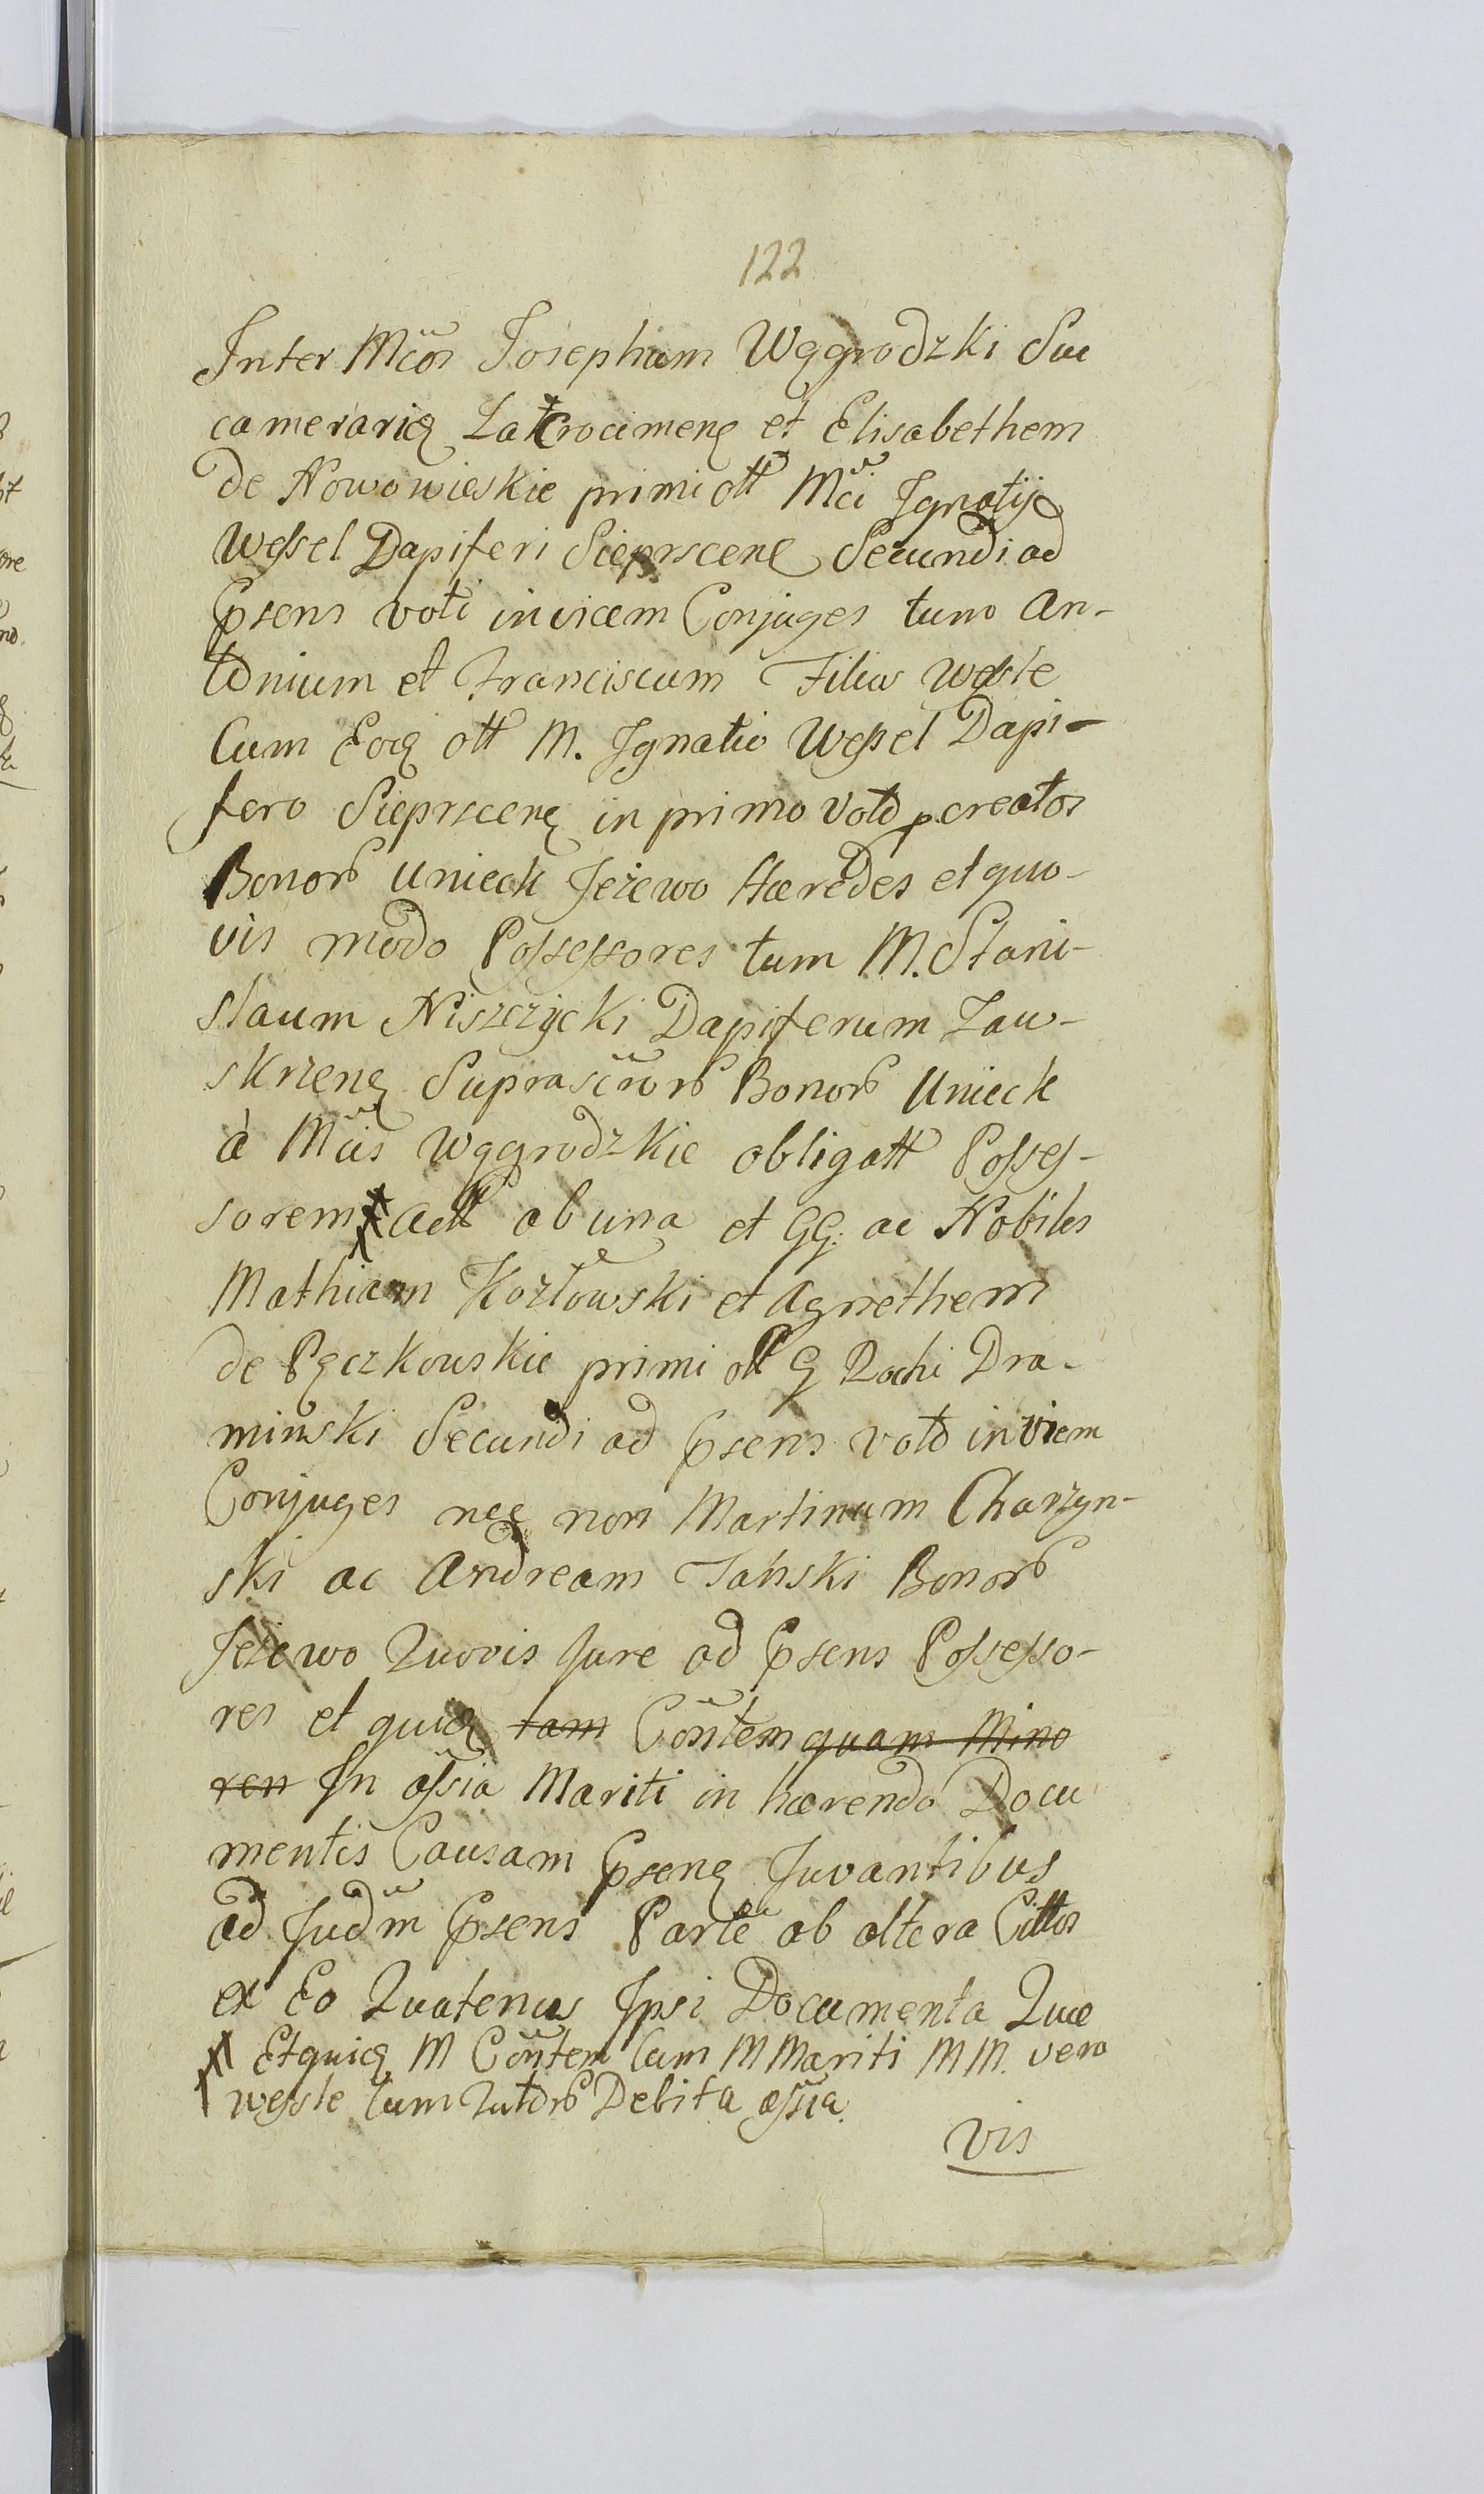 122
Inter Mcos Josephum Węgrodzki Suc
camerariũ Latrocimenẽ et Elisabethem
de Nowowieskie primi ott Mci Ignatij
Wessel Dapiferi Sieprscenẽ Secundi ad
Psens voti invicem Conjuges tum An-
tonium et Franciscum Filios Wessle
Cum Eoq ott M. Ignatio Wessel Dapi-
fero Sieprscenẽ in primo Voto pcreatos
Bonor Unieck Jeżewo Hæredes et quo-
vis modo Possessores tum M. Stani-
slaum Niszczycki Dapiferum Zaw-
skrzenẽ Suprascror Bonor Unieck
à Mcis Węgrodzkie obligatt Posses-
sorem Actt ab una et GG. ac Nobiles
Mathiam Kozłowski et Agnethem
de Pęczkowskie primi ott G Rochi Dra-
minski Secundi ad Psens voto inviem
Conjuges nec non Martinum Charzyn-
ski ac Andream Tański Bonor
Jeżewo Quovis Jure ad Psens Possesso-
res et quiq tam Contem quam Mino
ren In assia Mariti in hærendo Docu
mentis Causam Psenẽ Juvantibus
ad Judm Psens Parte ab altera Cittos
ex Eo Quatenus Ipsi Documenta Quæ
Et quiq M Contem Cum M Mariti MM. vero
Wessle Cum Tutor Debita assia.
vis